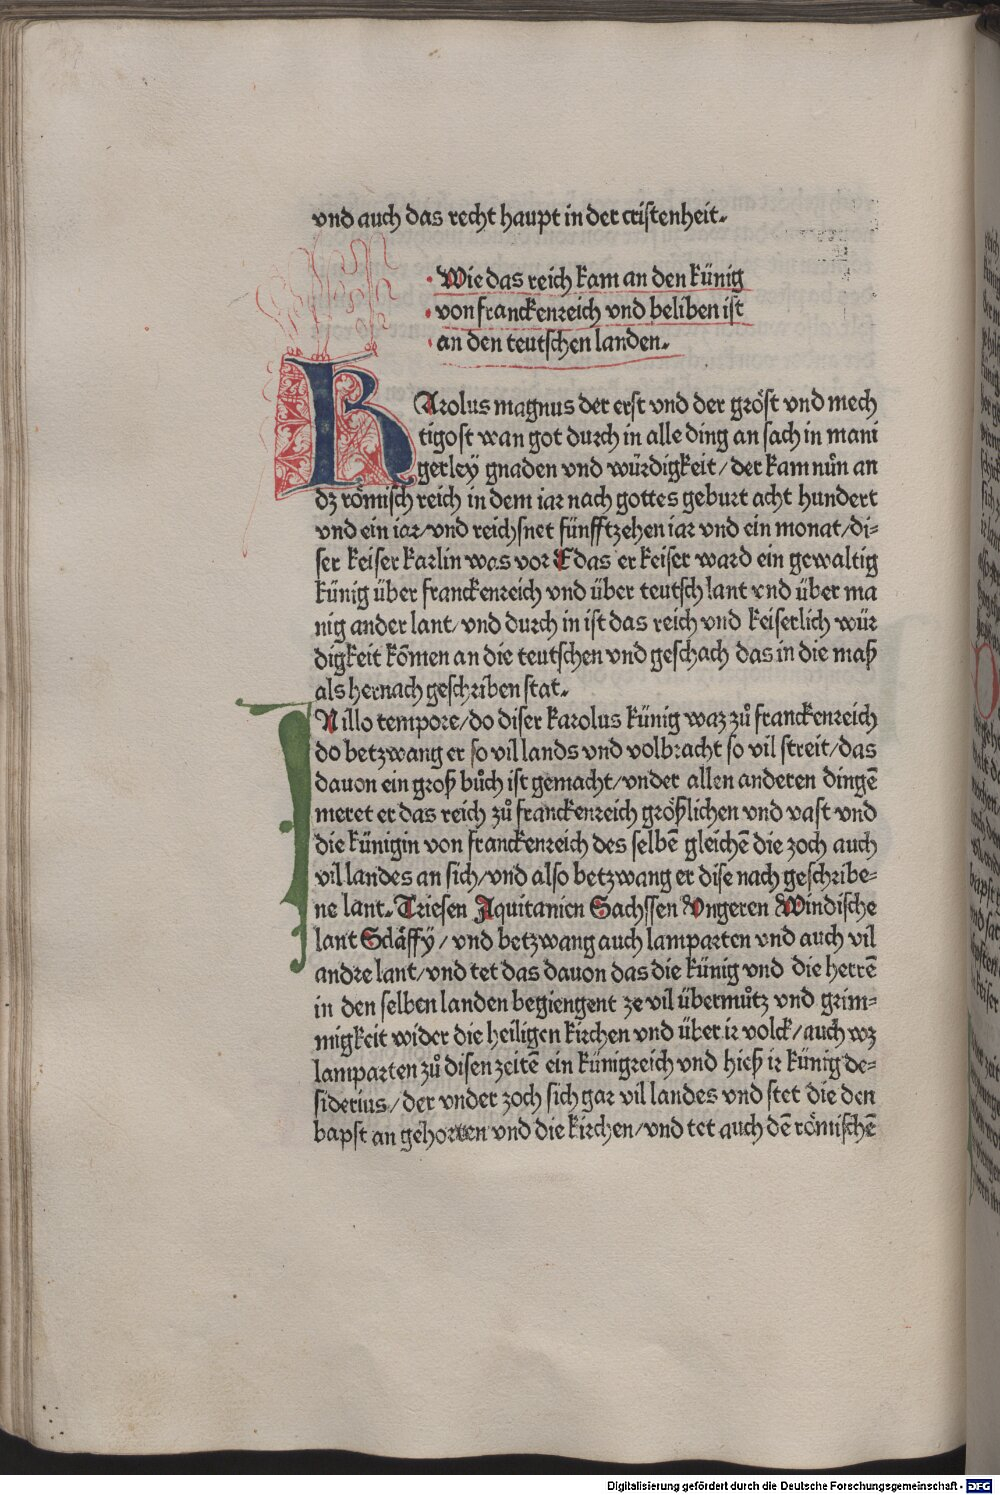 vnd auch das recht haupt in der cristenheit.
Wie das reich kam an den künig
von franckenreich vnd beliben ist
an den teutschen landen.
KArolus magnus der erst vnd der gröst vnd mech
tigost wan got durch in alle ding an sach in mani
gerley gnaden vnd würdigkeit/ der kam nůn an
dz römisch reich in dem iar nach gottes geburt acht hundert
vnd ein iar/vnd reichsnet fünfftzehen iar vnd ein monat/di=
ser keiser karlin was vor E das er keiser ward ein gewaltig
künig über franckenreich vnd über teutsch lant vnd über ma
nig ander lant/vnd durch in ist das reich vnd keiserlich wür
digkeit kōmen an die teutschen vnd geschach das in die maß
als hernach geschriben stat.
INillo tempore/do diser karolus künig waz zů franckenreich
do betzwang er so vil lands vnd volbracht so vil streit/das
dauon ein groß bůch ist gemacht/vnder allen anderen dingē
meret er das reich zů franckenreich größlichen vnd vast vnd
die künigin von franckenreich des selbē gleichē die zoch auch
vil landes an sich/vnd also betzwang er dise nach geschribe=
ne lant. Triesen Aquitanien Sachssen Vngeren Windische
lant Sclåffy/ vnd betzwang auch lamparten vnd auch vil
andre lant/vnd tet das dauon das die künig vnd die herrē
in den selben landen begiengent ze vil übermůtz vnd grim=
migkeit wider die heiligen kirchen vnd über ir volck/auch wz
lamparten zů disen zeitē ein künigreich vnd hieß ir künig de=
siderius/der vnder zoch sich gar vil landes vnd stet die den
bapst an gehorten vnd die kirchen/vnd tet auch dē römischē
Digitalisierung gefördert durch die Deutsche Forschungsgemeinschaft - DFG